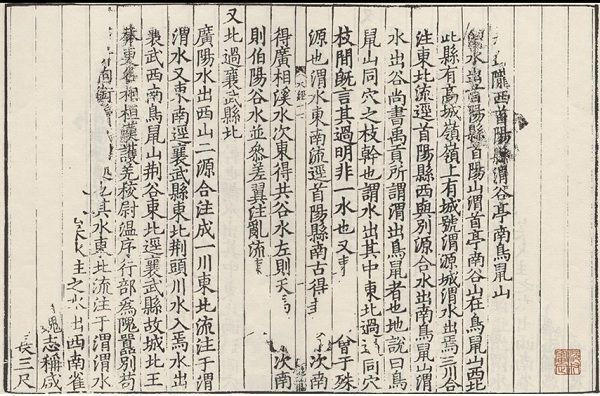 隴西首陽縣渭谷亭南鳥鼠山
水出首陽縣首陽山渭首亭南谷山在鳥鼠山西北
此縣有高城嶺嶺上有城號渭源城渭水出焉三川合
注東北流逕首陽縣西與別源合水出南鳥鼠山渭
水出谷尚書禹貢所謂渭出鳥鼠者也地說曰鳥
鼠山同穴之枝幹也謂水出其中東北過同穴
枝間旣言其過明非一水也又 曾子殊
源也渭水東南流逕首陽縣南古得 次南
得廣相溪水次東得共谷水左則天 次南
則伯陽谷水並叅差翼注亂流
又北過襄武縣北
廣陽水出西山二源合注成一川東北流注于渭
渭水又東南逕襄武縣東北荆頭川水入焉水出
襄武西南鳥鼠山荆谷東北逕襄武縣故城北王
莽 桓漢護羗校尉溫序行部爲隗囂別苟
其水東北流注于渭渭水
主之水出西南雀
志稱咸
長三尺